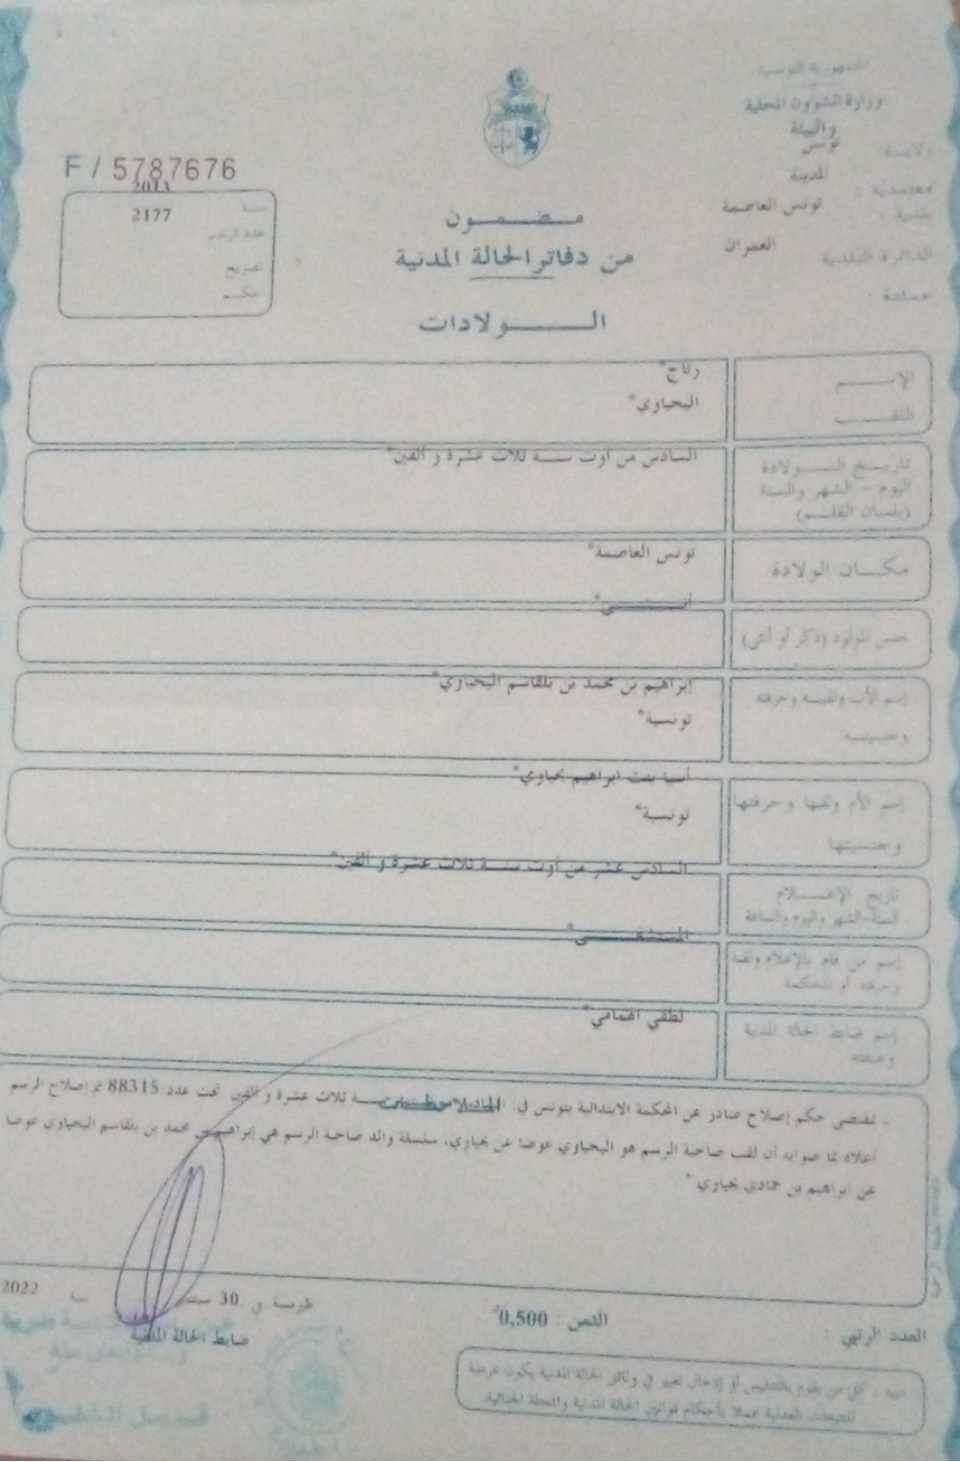 الجمهورية التونسية
وزارة الشؤون المحلية
والبيئة
ولاية: تونس
معتمدية : المدينة
بلدية : تونس العاصمة
الدائرة البلدية العمران
عمادة :
F / 5787676
سنة 2013
عدد الرسم 2177
تصريح
حكم
مضمون
من دفاتر الحالة المدنية
الولادات
الإسم رتاج"
اللقب اليحياوي"
تاريخ الولادة السادس من أوت سنة ثلاث عشرة و ألفين"
اليوم - الشهر والسنة
(بلسان القلم)
مكان الولادة تونس العاصمة"
جنس المولود (ذكر أو أنثى) أنثى"
إسم الأب ولقبه وحرفته إبراهيم بن محمد بن بلقاسم اليحياوي"
وجنسيته تونسية"
إسم الأم ولقبها وحرفتها آسيا بنت ابراهيم يحياوي"
وجنسيتها تونسية"
تاريخ الإعلام السادس عشر من أوت سنة ثلاث عشرة و ألفين"
السنة-الشهر واليوم والساعة
إسم من قام بالإعلام ولقبه المستشفى"
وحرفته أو المحكمة
إسم ضابط الحالة المدنية لطفي الهمامي"
وصفته
- بمقتضى حكم إصلاح صادر عن المحكمة الابتدائية بتونس في: سنة ثلاث عشرة و ألفين تحت عدد 88315 تم إصلاح الرسم
أعلاه بما صوابه أن لقب صاحبة الرسم هو اليحياوي عوضا عن يحياوي، سلسلة والد صاحبة الرسم هي إبراهيم بن محمد بن بلقاسم اليحياوي عوضا
عن ابراهيم بن حمادي يحياوي "
طبربة في 30 سبتمبر سنة 2022
ضابط الحالة المدنية
الثمن : 0,500د
العدد الرتبي :
تنبيه : كل من يقوم بالتدليس أو إدخال تغيير في وثائق الحالة المدنية يكون عرضة
للتتبعات العدلية عملا بأحكام قوانين الحالة المدنية والمجلة الجنائية.